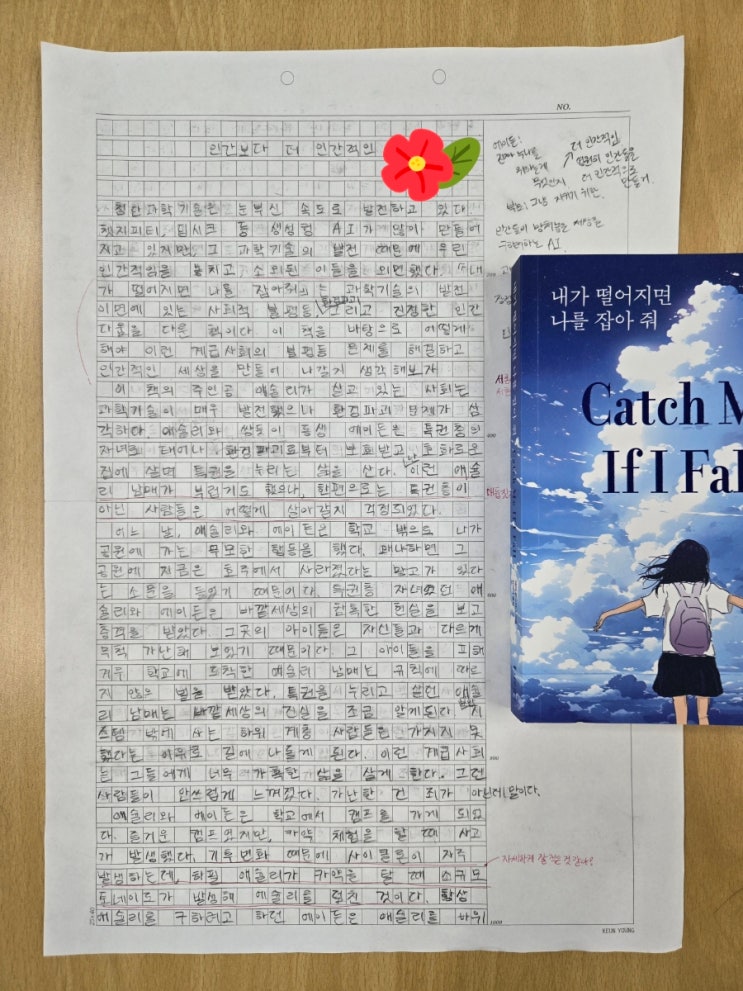 NO.
인간보다 더 인간적인
첨단 과학 기술은 눈부신 속도로 발전하고 있다.
챗지피티, 딥시크 등 생성형 AI가 많이 만들어
지고 있지만, 그 과학기술의 발전 때문에 우린
인간적임을 놓치고 소외된 이들을 외면했다. 「내
가 떨어지면 나를 잡아줘」는 과학기술의 발전
이면에 있는 사회적 불평등, 환경파괴 그리고 진정한 인간
다움을 다룬 책이다. 이 책을 바탕으로 어떻게
해야 이런 계급사회의 불평등 문제를 해결하고
인간적인 세상을 만들어 나갈지 생각해보자.
이 책의 주인공 애슐리가 살고 있는 사회는
과학기술이 매우 발전했으나 환경파괴 문제가 심
각하다. 애슐리와 쌍둥이 동생 에이든은 특권층의
자녀로 태어나 환경파괴로부터 보호받고 호화로운
집에 살며 특권을 누리는 삶을 산다. 난 이런 애슐
리 남매가 부럽기도 했으나, 한편으로는 특권층이
아닌 사람들은 어떻게 살아갈지 걱정되었다.
어느 날, 애슐리와 에이든은 학교 밖으로 나가
공원에 가는 무모한 행동을 했다. 왜냐하면 그
공원에 지금은 호주에서 사라졌다는 말고가 있다
는 소문을 들었기 때문이다. 특권층 자녀였던 애
슐리와 에이든은 바깥세상의 참혹한 현실을 보고
충격을 받았다. 그곳의 아이들은 자신들과 다르게
무척 가난해 보였기 때문이다. 그 아이들을 피해
겨우 학교에 도착한 애슐리 남매는 규칙에 따르
지 않은 벌을 받았다. 특권을 누리고 살던 애슐
리 남매는 바깥세상의 진실을 조금 알게된다.
스템 밖에 사는 하위 계층 사람들은 가지지 못
했다는 이유로 길에 나돌게 된다. 이런 계급사회
는 그들에게 너무 가혹한 삶을 살게 한다. 그런
사람들이 안쓰럽게 느껴졌다. 가난한 건 죄가 아닌데 말이다.
애슐리와 에이든은 학교에서 캠프를 가게 되었
다. 즐거운 캠프였지만, 카약 체험을 할 때 사고
가 발생했다. 기후변화 때문에 사이클론이 자주
발생하는데, 하필 애슐리가 카약을 탈 때 소규모
토네이도가 발생해 애슐리를 덮친 것이다. 항상
애슐리를 구하려고 하던 에이든은 애슐리를 하위
더 인간적인
더 인간적으로
만들기.
자세하게 잘 쓴 것 같아요!
25×40
1000
KEUK YOUNG
내가 떨어지면
나를 잡아 줘
Catch M
If I Fal